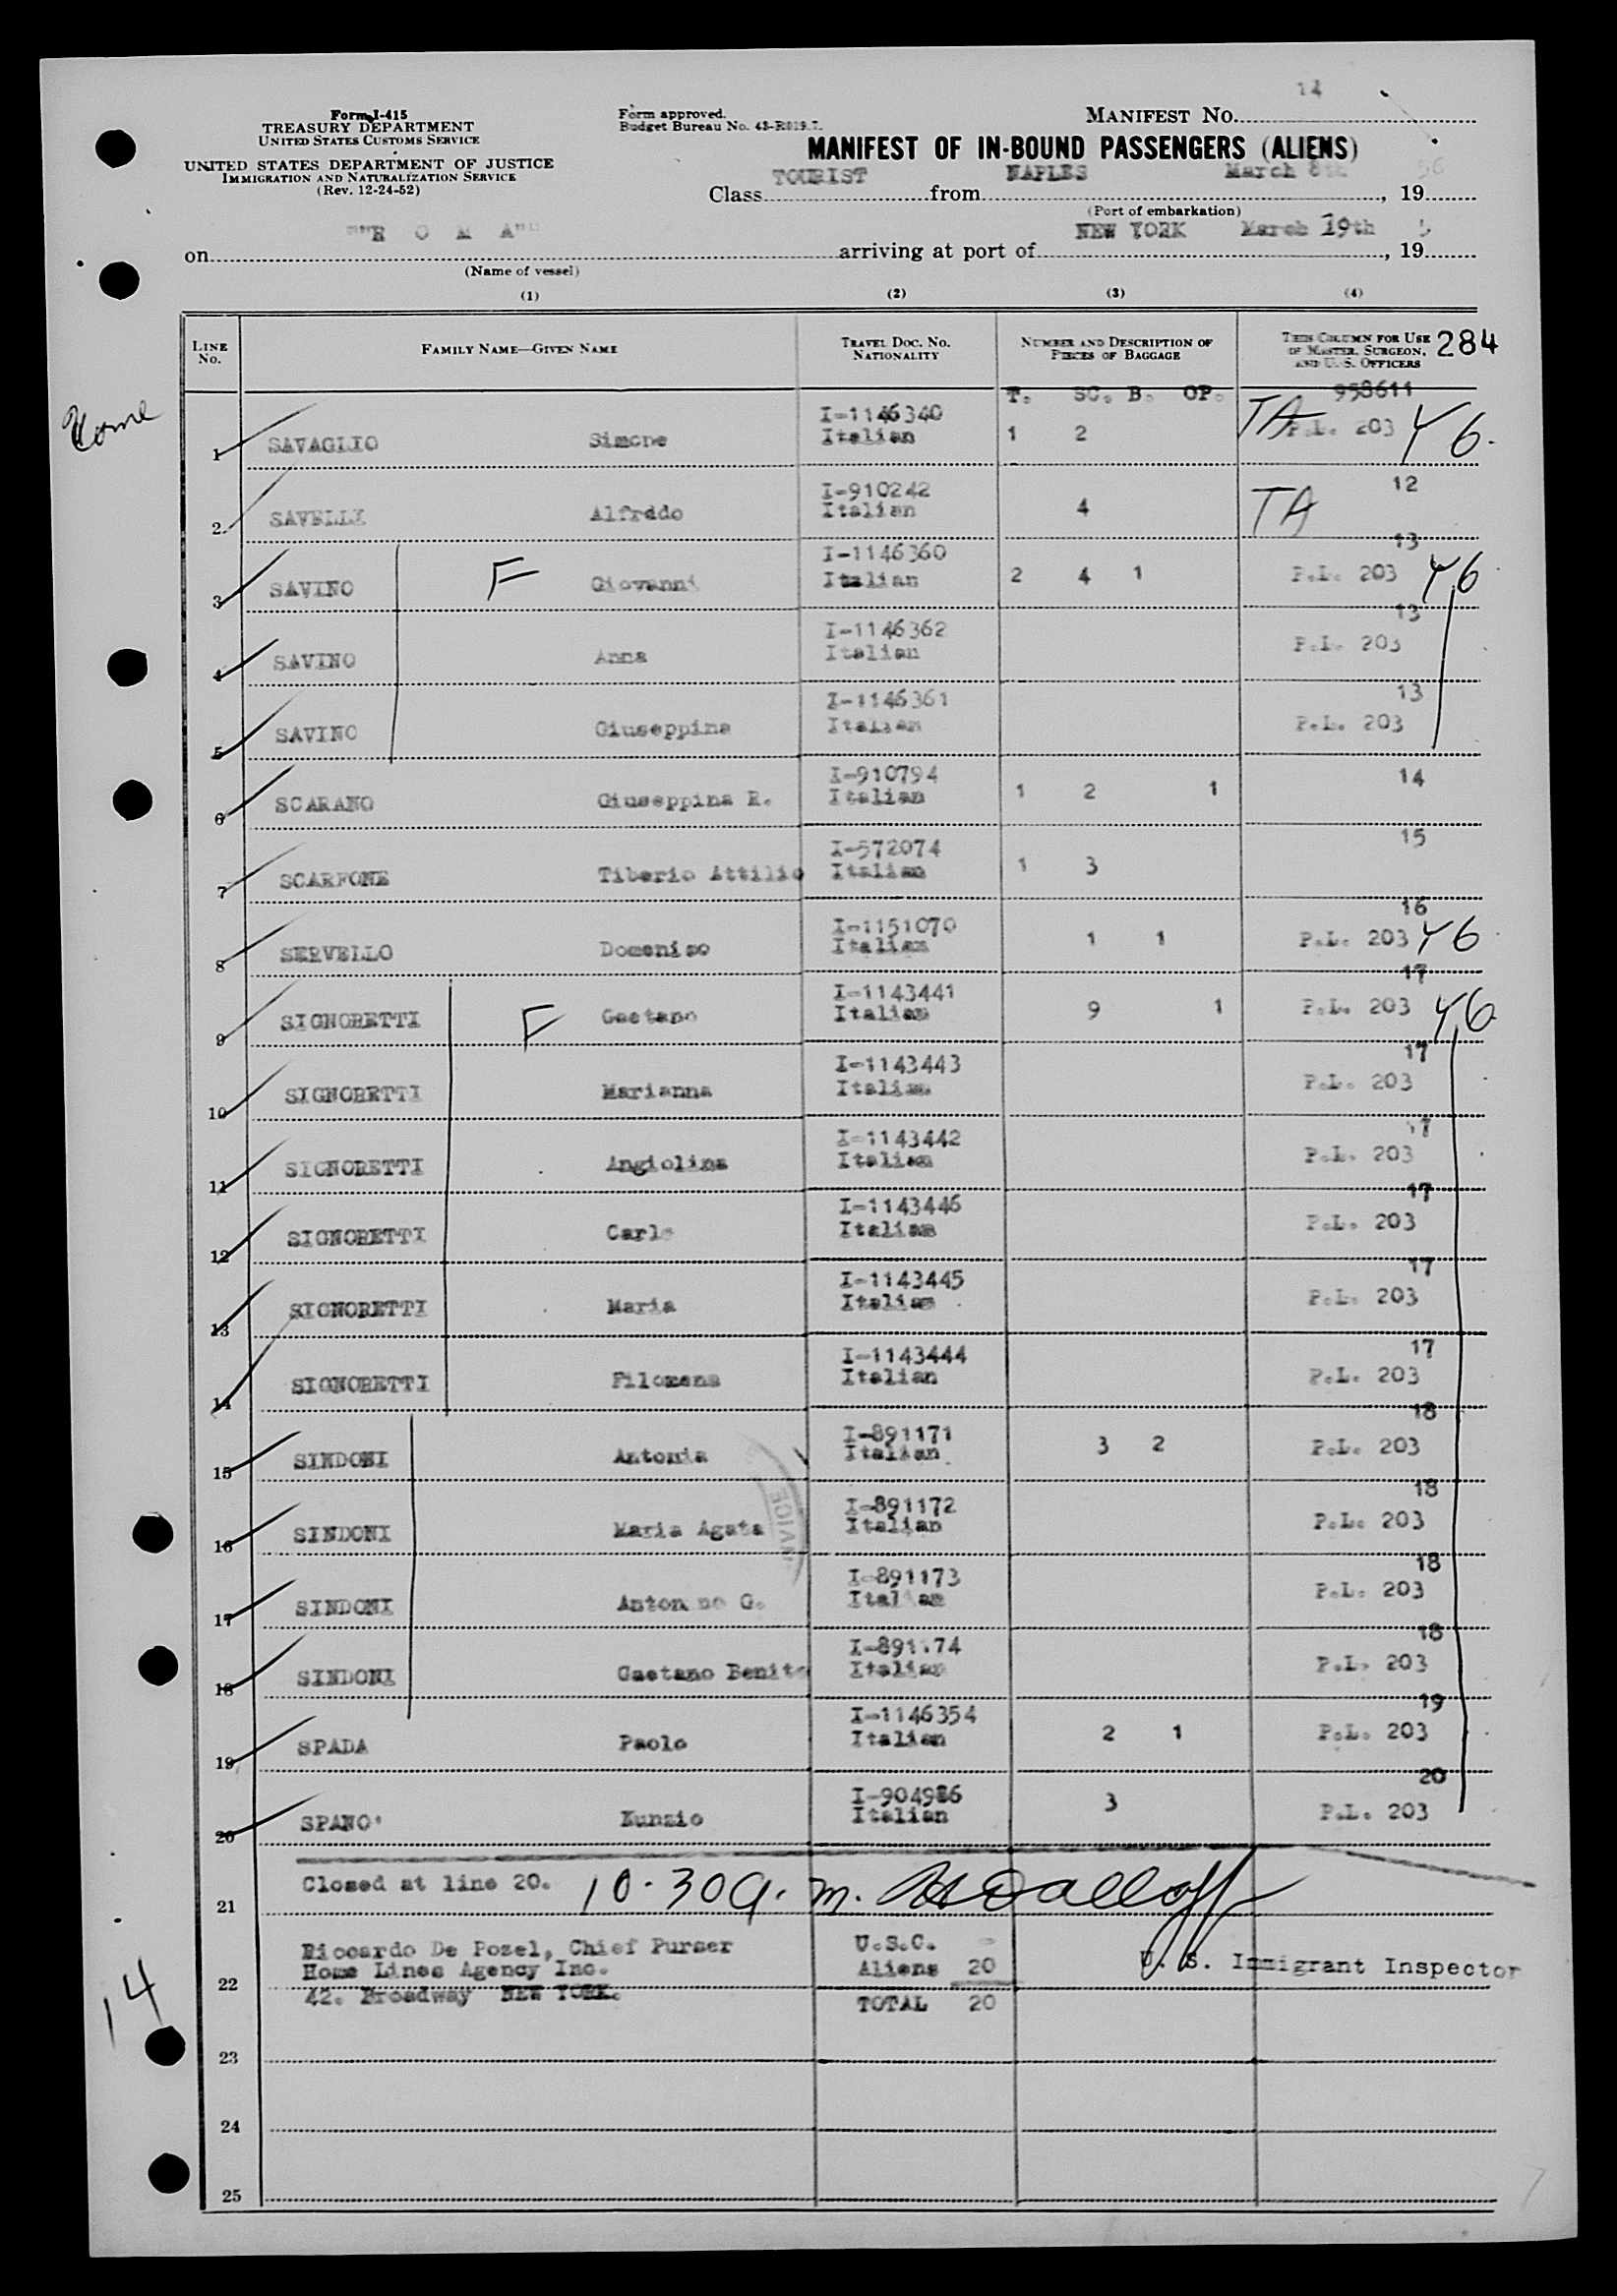 14
Form I-415
TREASURY DEPARTMENT
UNITED STATES CUSTOMS SERVICE
UNITED STATES DEPARTMENT OF JUSTICE
IMMIGRATION AND NATURALIZATION SERVICE
(Rev. 12-24-52)
Form approved.
Budget Bureau No. 43-R019.7.
MANIFEST No.
MANIFEST OF IN-BOUND PASSENGERS (ALIENS)
Class TOURIST from NAPLES March 8th, 1956
(Port of embarkation)
on "R O M A" arriving at port of NEW YORK March 19th, 19
(Name of vessel)
(1) (2) (3) (4)
LINE No. FAMILY NAME—GIVEN NAME TRAVEL DOC. No. NATIONALITY NUMBER AND DESCRIPTION OF PIECES OF BAGGAGE THIS COLUMN FOR USE OF MASTER, SURGEON, AND U. S. OFFICERS 284
T. SC. B. OP. 958611
I-1146340
1 SAVAGLIO Simone Italian 1 2 TA P.L. 203 Y6.
I-910242 12
2 SAVELLI Alfredo Italian 4 TA
I-1146360 13
3 SAVINO F Giovanni Italian 2 4 1 P.L. 203 Y6
I-1146362 13
4 SAVINO Anna Italian P.L. 203
I-1146361 13
5 SAVINO Giuseppina Italian P.L. 203
I-910794 14
6 SCARANO Giuseppina R. Italian 1 2 1
I-572074 15
7 SCARFONE Tiberio Attilio Italian 1 3
I-1151070 16
8 SERVELLO Domenico Italian 1 1 P.L. 203 Y6
I-1143441 17
9 SIGNORETTI F Gaetano Italian 9 1 P.L. 203 Y6
I-1143443 17
10 SIGNORETTI Marianna Italian P.L. 203
I-1143442 17
11 SIGNORETTI Angiolina Italian P.L. 203
I-1143446 17
12 SIGNORETTI Carlo Italian P.L. 203
I-1143445 17
13 SIGNORETTI Maria Italian P.L. 203
I-1143444 17
14 SIGNORETTI Filomena Italian P.L. 203
I-891171 18
15 SINDONI Antonia Italian 3 2 P.L. 203
I-891172 18
16 SINDONI Maria Agata Italian P.L. 203
I-891173 18
17 SINDONI Antonino G. Italian P.L. 203
I-891174 18
18 SINDONI Gaetano Benito Italian P.L. 203
I-1146354 19
19 SPADA Paolo Italian 2 1 P.L. 203
I-904986 20
20 SPANO' Nunzio Italian 3 P.L. 203
21 Closed at line 20. 10.30 a.m.
Riccardo De Pozel, Chief Purser U.S.C. -
22 Home Lines Agency Inc. Aliens 20 U. S. Immigrant Inspector
42. Broadway NEW YORK. TOTAL 20
14
23
24
25